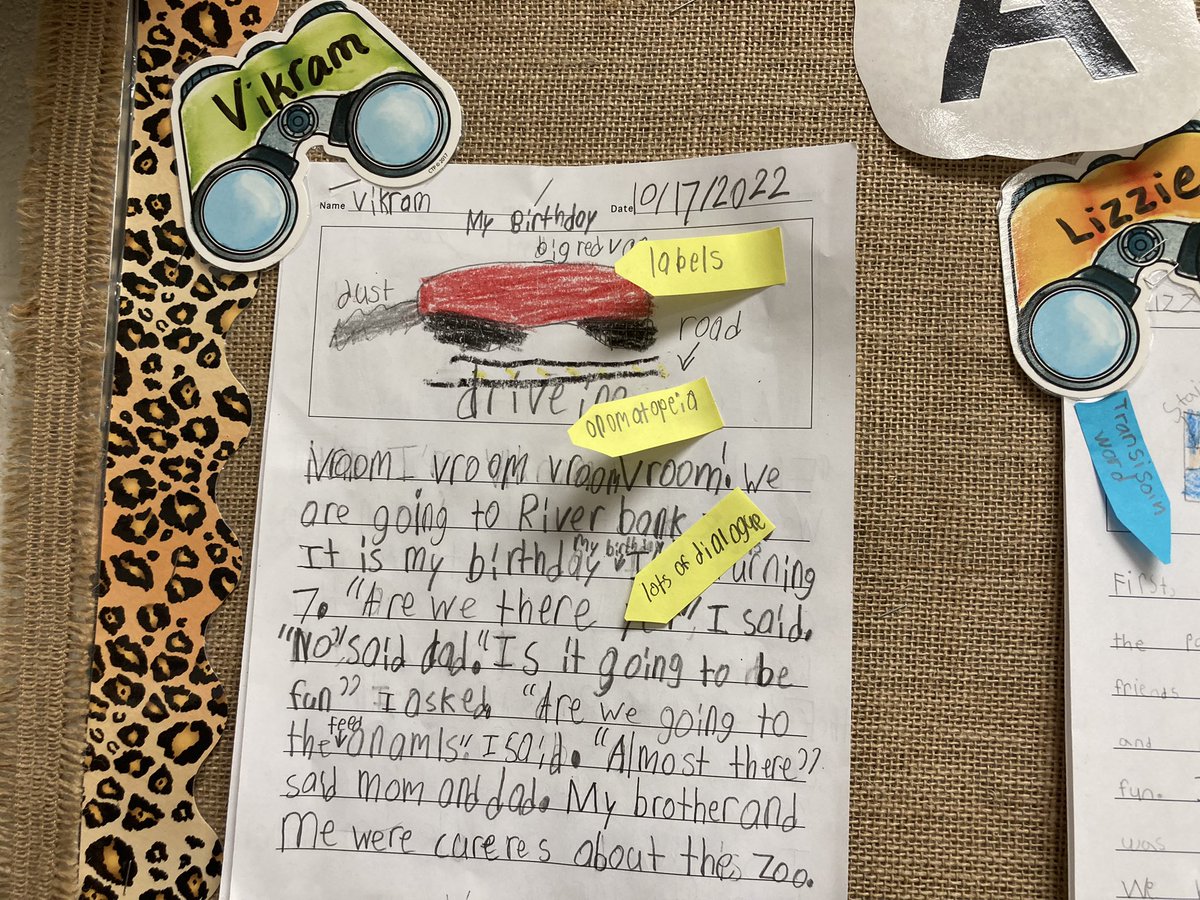 Vikram
A
Lizzie
Name Vikram Date 10/17/2022
My Birthday
big red
labels
dust
road
driveing
onomatopeia
vroom vroom vroom vroom! We
are going to River bank
It is my birthday my birthday turning
lots of dialogue
7. "Are we there I said.
"No" said dad. "Is it going to be
fun" I asked. "Are we going to
the feed anamls" I said. "Almost there"
said mom and dad. My brother and
me were careres about the zoo.
Transisoin
word
First,
the
friends
and
fun.
was
We